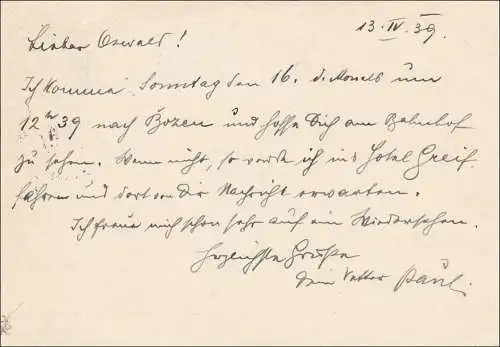 13. IV. 39.
Lieber Oswald!
Ich komme Sonntag den 16. d. Monats um
12 39 nach Bozen und hoffe Dich am Bahnhof
zu sehen. Wenn nicht, so werde ich ins Hotel Greif
fahren und dort von Dir Nachricht erwarten.
Ich freue mich schon sehr auf ein Wiedersehen.
Herzlichste Grüße
Dein Vetter Paul.